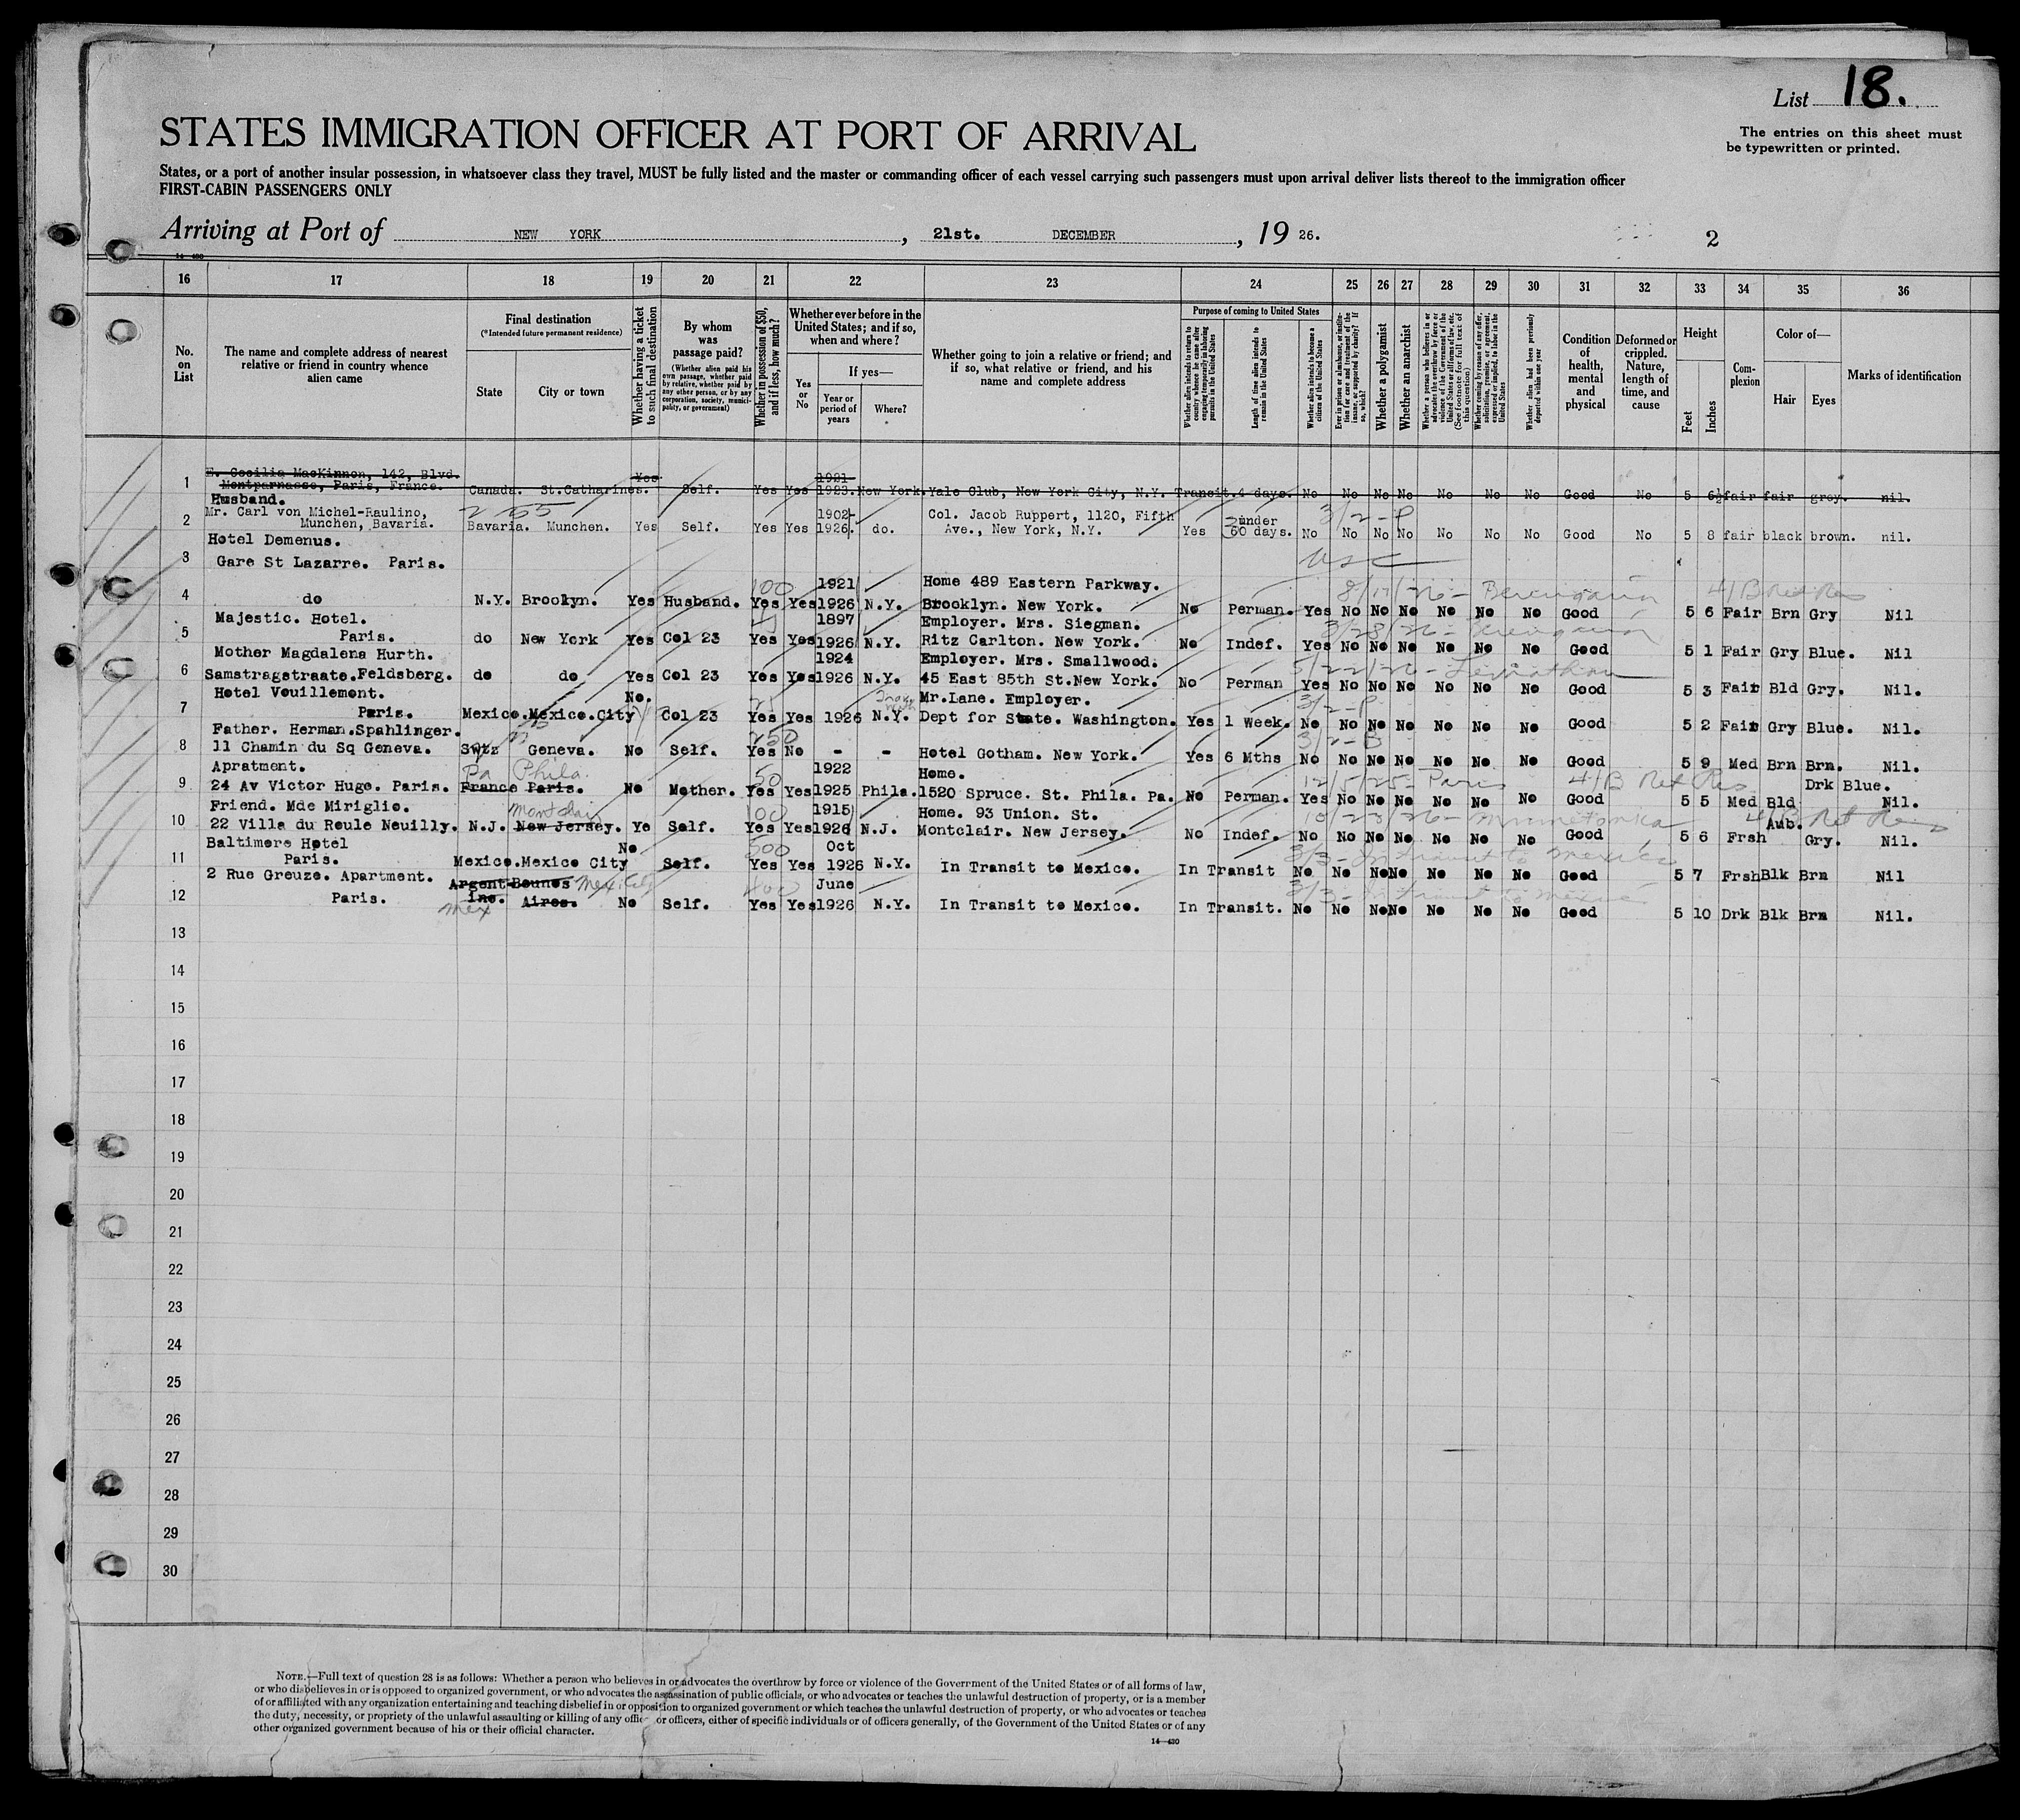 List 18.
The entries on this sheet must
be typewritten or printed.
STATES IMMIGRATION OFFICER AT PORT OF ARRIVAL
States, or a port of another insular possession, in whatsoever class they travel, MUST be fully listed and the master or commanding officer of each vessel carrying such passengers must upon arrival deliver lists thereof to the immigration officer
FIRST-CABIN PASSENGERS ONLY
Arriving at Port of NEW YORK, 21st. DECEMBER, 19 26.
2
14-430
16 17 18 19 20 21 22 23 24 25 26 27 28 29 30 31 32 33 34 35 36
No. on List
The name and complete address of nearest relative or friend in country whence alien came
Final destination
(*Intended future permanent residence)
State
City or town
Whether having a ticket to such final destination
By whom was passage paid?
(Whether alien paid his own passage, whether paid by relative, whether paid by any other person, or by any corporation, society, municipality, or government)
Whether in possession of $50, and if less, how much?
Whether ever before in the United States; and if so, when and where?
Yes or No
If yes—
Year or period of years
Where?
Whether going to join a relative or friend; and if so, what relative or friend, and his name and complete address
Purpose of coming to United States
Whether alien intends to return to country whence he came after engaging temporarily in laboring pursuits in the United States
Length of time alien intends to remain in the United States
Whether alien intends to become a citizen of the United States
Ever in prison or almshouse, or institution for care and treatment of the insane, or supported by charity? If so, which?
Whether a polygamist
Whether an anarchist
Whether a person who believes in or advocates the overthrow by force or violence of the Government of the United States or all forms of law, etc. (See footnote for full text of this question)
Whether coming by reason of any offer, solicitation, promise, or agreement, expressed or implied, to labor in the United States
Whether alien had been previously deported within one year
Condition of health, mental and physical
Deformed or crippled. Nature, length of time, and cause
Height
Feet
Inches
Complexion
Color of—
Hair
Eyes
Marks of identification
1 E. Cecilia MacKinnon, 142, Blvd. Montparnasse, Paris, France. Canada. St.Catharines. Yes Self. Yes Yes 1921-1923. New York. Yale Club, New York City, N.Y. Transit. 4 days. No No No No No No No Good No 5 6½ fair fair grey. nil.
2 Husband. Mr. Carl von Michel-Raulino, Munchen, Bavaria. Bavaria. Munchen. Yes Self. Yes Yes 1902-1926. do. Col. Jacob Ruppert, 1120, Fifth Ave., New York, N.Y. Yes under 60 days. No No No No No No No Good No 5 8 fair black brown. nil.
3/2-P
3 Hotel Demenus. Gare St Lazarre. Paris.
USC
4 do N.Y. Brooklyn. Yes Husband. 100 Yes Yes 1921 1926 N.Y. Home 489 Eastern Parkway. Brooklyn. New York. No Perman. Yes No No No No No No Good 5 6 Fair Brn Gry Nil
Berengaria
5 Majestic. Hotel. Paris. do New York Yes Col 23 Yes Yes 1897 1926 N.Y. Employer. Mrs. Siegman. Ritz Carlton. New York. No Indef. Yes No No No No No No Good 5 1 Fair Gry Blue. Nil
6 Mother Magdalena Hurth. Samstragstraate.Feldsberg. do do Yes Col 23 Yes Yes 1924 1926 N.Y. Employer. Mrs. Smallwood. 45 East 85th St.New York. No Perman Yes No No No No No No Good 5 3 Fair Bld Gry. Nil.
5/22/26 - Leviathan
7 Hotel Vouillemont. Paris. Mexico.Mexico.City No. Col 23 Yes Yes 1926 N.Y. Mr.Lane. Employer. Dept for State. Washington. Yes 1 Week. No No No No No No No Good 5 2 Fair Gry Blue. Nil.
3/2-P
8 Father. Herman.Spahlinger. 11 Chamin du Sq Geneva. Swtz Geneva. No Self. 250 Yes No - - Hotel Gotham. New York. Yes 6 Mths No No No No No No No Good 5 9 Med Brn Brn. Nil.
3/2-B
9 Apratment. 24 Av Victor Hugo. Paris. Pa Phila. France Paris. No Mother. 50 Yes Yes 1922 1925 Phila. Home. 1520 Spruce. St. Phila. Pa. No Perman. Yes No No No No No No Good 5 5 Med Bld Drk Blue. Nil.
12/5/25 - Paris 41B Ret Res
10 Friend. Mde Miriglio. 22 Villa du Roule Neuilly. N.J. Montclair New Jersey. Ye Self. 100 Yes Yes 1915 1926 N.J. Home. 93 Union. St. Montclair. New Jersey. No Indef. No No No No No No No Good 5 6 Frsh Aub. Gry. Nil.
10/23/26 - Minnetonka 41B Ret Res
11 Baltimore Hotel Paris. Mexico.Mexico City No Self. 500 Yes Yes Oct 1926 N.Y. In Transit to Mexico. In Transit No No No No No No No Good 5 7 Frsh Blk Brn Nil
3/3 - In transit to Mexico
12 2 Rue Greuze. Apartment. Paris. Argentine. Beunos Aires. Mex Mex. City No Self. 400 Yes Yes June 1926 N.Y. In Transit to Mexico. In Transit. No No No No No No No Good 5 10 Drk Blk Brn Nil.
3/3 - In transit to Mexico
13
14
15
16
17
18
19
20
21
22
23
24
25
26
27
28
29
30
NOTE.—Full text of question 28 is as follows: Whether a person who believes in or advocates the overthrow by force or violence of the Government of the United States or of all forms of law,
or who disbelieves in or is opposed to organized government, or who advocates the assassination of public officials, or who advocates or teaches the unlawful destruction of property, or is a member
of or affiliated with any organization entertaining and teaching disbelief in or opposition to organized government or which teaches the unlawful destruction of property, or who advocates or teaches
the duty, necessity, or propriety of the unlawful assaulting or killing of any officer or officers, either of specific individuals or of officers generally, of the Government of the United States or of any
other organized government because of his or their official character.
14-430